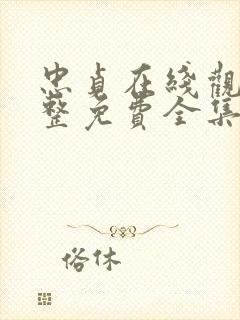 忠貞在綫觀
整免費全集
俗休